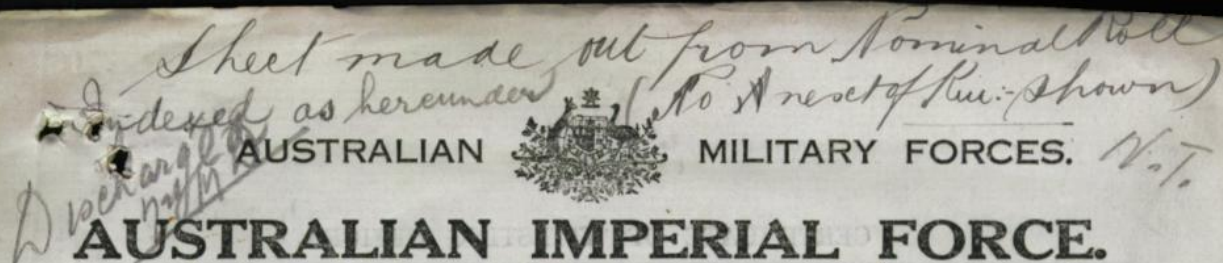 Sheet made out from Nominal Roll
Indexed as hereunder (No next of Kin:- Shown)
AUSTRALIAN MILITARY FORCES.
N.T.
Discharged
AUSTRALIAN IMPERIAL FORCE.